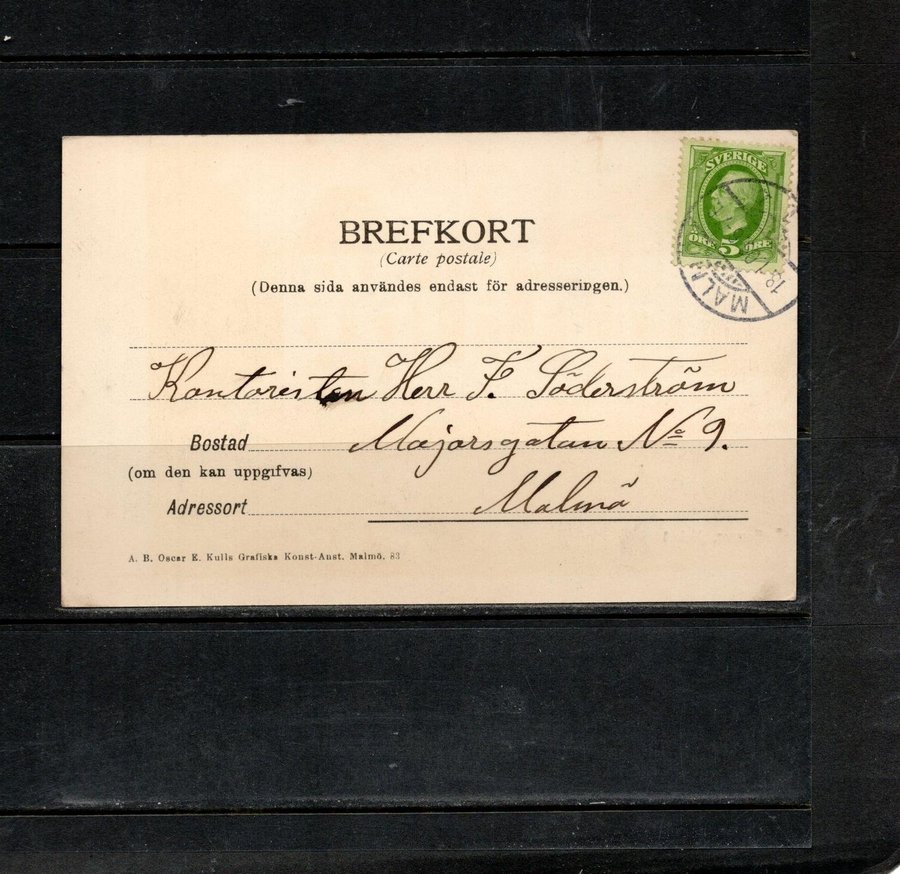 SVERIGE
ÖRE 5 ÖRE
BREFKORT
(Carte postale)
(Denna sida användes endast för adresseringen.)
Kontoristen Herr F. Söderström
Bostad Majorsgatan No 9.
(om den kan uppgifvas)
Adressort Malmö
A. B. Oscar E. Kulls Grafiska Konst-Anst. Malmö. 83